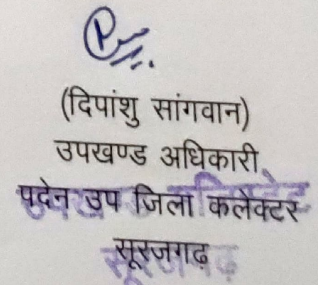 (दिपांशु सांगवान)
उपखण्ड अधिकारी
पदेन उप जिला कलेक्टर
सूरजगढ़